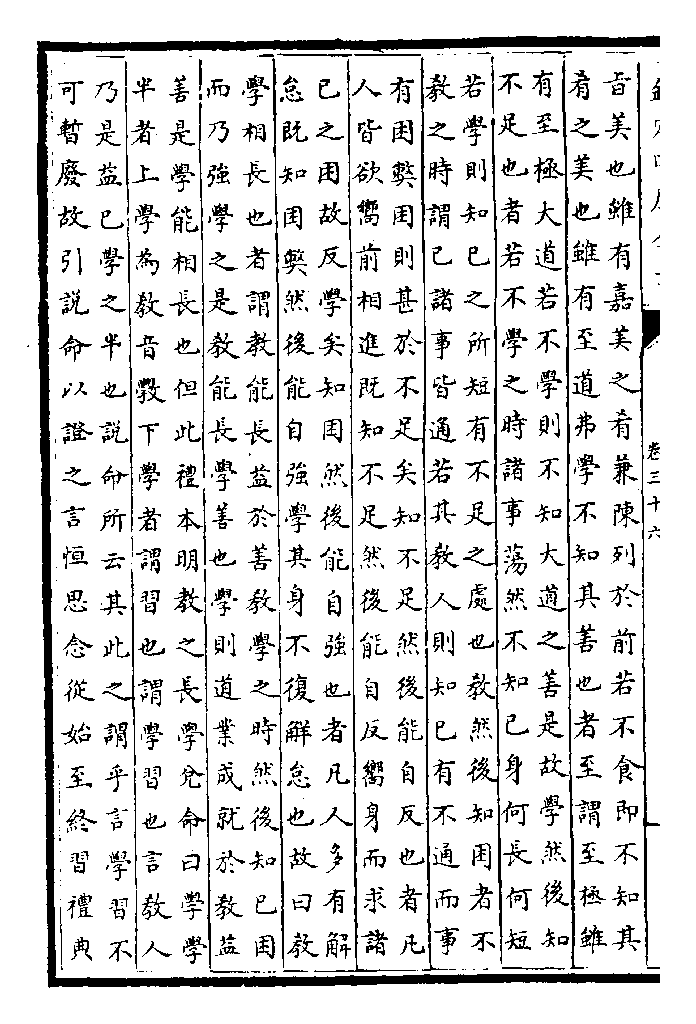 卷三十六
旨美也雖有嘉美之肴兼陳列於前若不食即不知其
肴之美也雖有至道弗學不知其善也者至謂至極雖
有至極大道若不學則不知大道之善是故學然後知
不足也者若不學之時諸事蕩然不知已身何長何短
若學則知已之所短有不足之處也教然後知困者不
教之時謂已諸事皆通若其教人則知已有不通而事
有困弊困則甚於不足矣知不足然後能自反也者凡
人皆欲嚮前相進既知不足然後能自反嚮身而求諸
已之困故反學矣知困然後能自強也者凡人多有解
怠既知困弊然後能自強學其身不復解怠也故曰教
學相長也者謂教能長益於善教學之時然後知已困
而乃強學之是教能長學善也學則道業成就於教益
善是學能相長也但此禮本明教之長學兌命曰學學
半者上學為教音斆下學者謂習也謂學習也言教人
乃是益已學之半也說命所云其此之謂乎言學習不
可暫廢故引説命以證之言恒思念從始至終習禮典